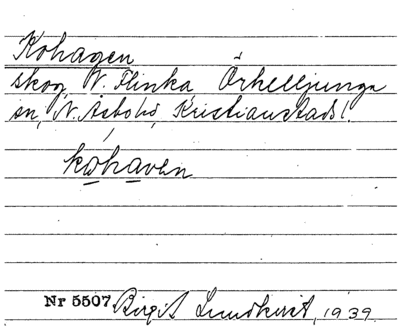 Kohagen
skog, V. Flinka, Örkelljunga
sn, N. Åsbo hd, Kristianstads l.
kohaven
Nr 5507. Birgit Lundkvist, 1939.